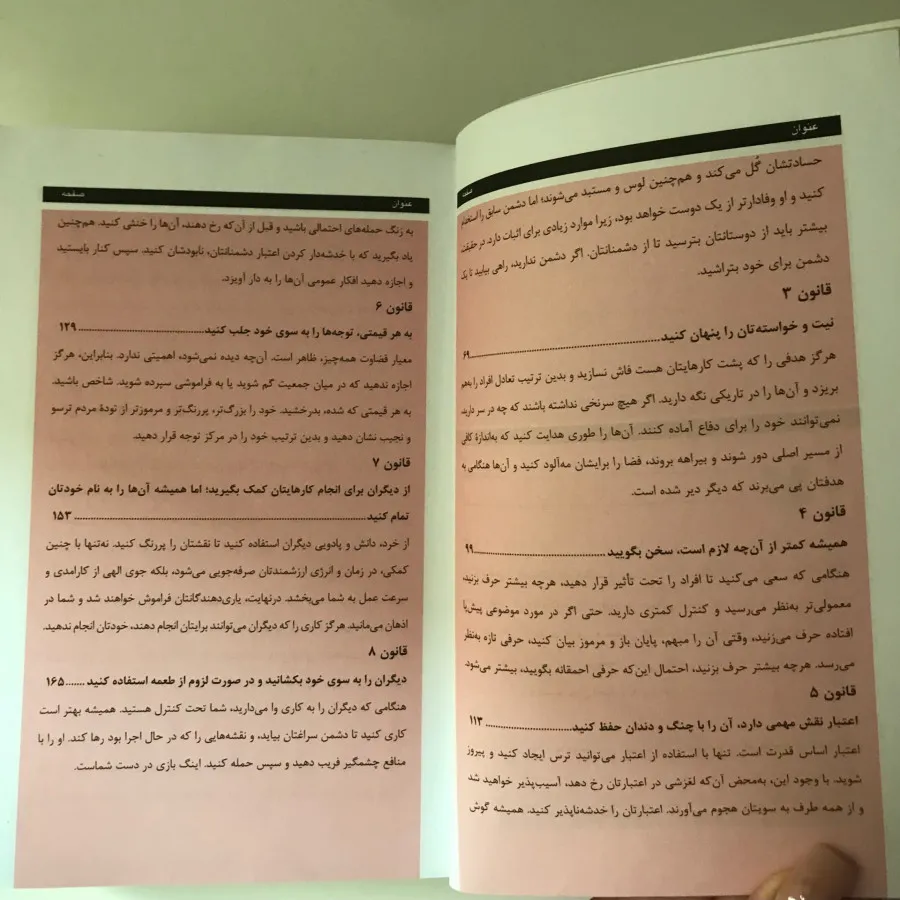 عنوان
صفحه
حسادتشان گُل می‌کند و هم‌چنین لوس و مستبد می‌شوند؛ اما دشمن سابق را استخدام
کنید و او وفادارتر از یک دوست خواهد بود، زیرا موارد زیادی برای اثبات دارد. در حقیقت
بیشتر باید از دوستانتان بترسید تا از دشمنانتان. اگر دشمن ندارید، راهی بیابید تا یک
دشمن برای خود بتراشید.
قانون ۳
نیت و خواسته‌تان را پنهان کنید ۶۹
هرگز هدفی را که پشت کارهایتان هست فاش نسازید و بدین ترتیب تعادل افراد را به‌هم
بریزد و آن‌ها را در تاریکی نگه دارید. اگر هیچ سرنخی نداشته باشند که چه در سر دارید،
نمی‌توانند خود را برای دفاع آماده کنند. آن‌ها را طوری هدایت کنید که به‌اندازهٔ کافی
از مسیر اصلی دور شوند و بیراهه بروند، فضا را برایشان مه‌آلود کنید و آن‌ها هنگامی به
هدفتان پی می‌برند که دیگر دیر شده است.
قانون ۴
همیشه کمتر از آن‌چه لازم است، سخن بگویید ۹۹
هنگامی که سعی می‌کنید تا افراد را تحت تأثیر قرار دهید، هرچه بیشتر حرف بزنید،
معمولی‌تر به‌نظر می‌رسید و کنترل کمتری دارید. حتی اگر در مورد موضوعی پیش‌پا
افتاده حرف می‌زنید، وقتی آن را مبهم، پایان باز و مرموز بیان کنید، حرفی تازه به‌نظر
می‌رسد. هرچه بیشتر حرف بزنید، احتمال این‌که حرفی احمقانه بگویید، بیشتر می‌شود.
قانون ۵
اعتبار نقش مهمی دارد، آن را با چنگ و دندان حفظ کنید ۱۱۳
اعتبار اساس قدرت است. تنها با استفاده از اعتبار می‌توانید ترس ایجاد کنید و پیروز
شوید. با وجود این، به‌محض آن‌که لغزشی در اعتبارتان رخ دهد، آسیب‌پذیر خواهید شد
و از همه طرف به سویتان هجوم می‌آورند. اعتبارتان را خدشه‌ناپذیر کنید. همیشه گوش
عنوان
صفحه
به زنگ حمله‌های احتمالی باشید و قبل از آن‌که رخ دهند، آن‌ها را خنثی کنید. هم‌چنین
یاد بگیرید که با خدشه‌دار کردن اعتبار دشمنانتان، نابودشان کنید. سپس کنار بایستید
و اجازه دهید افکار عمومی آن‌ها را به دار آویزد.
قانون ۶
به هر قیمتی، توجه‌ها را به سوی خود جلب کنید ۱۲۹
معیار قضاوت همه‌چیز، ظاهر است. آن‌چه دیده نمی‌شود، اهمیتی ندارد. بنابراین، هرگز
اجازه ندهید که در میان جمعیت گم شوید یا به فراموشی سپرده شوید. شاخص باشید.
به هر قیمتی که شده، بدرخشید. خود را بزرگ‌تر، پررنگ‌تر و مرموزتر از تودهٔ مردم ترسو
و نجیب نشان دهید و بدین ترتیب خود را در مرکز توجه قرار دهید.
قانون ۷
از دیگران برای انجام کارهایتان کمک بگیرید؛ اما همیشه آن‌ها را به نام خودتان
تمام کنید ۱۵۳
از خرد، دانش و پادویی دیگران استفاده کنید تا نقشتان را پررنگ کنید. نه‌تنها با چنین
کمکی، در زمان و انرژی ارزشمندتان صرفه‌جویی می‌شود، بلکه جوی الهی از کارامدی و
سرعت عمل به شما می‌بخشد. درنهایت، یاری‌دهندگانتان فراموش خواهند شد و شما در
اذهان می‌مانید. هرگز کاری را که دیگران می‌توانند برایتان انجام دهند، خودتان انجام ندهید.
قانون ۸
دیگران را به سوی خود بکشانید و در صورت لزوم از طعمه استفاده کنید ۱۶۵
هنگامی که دیگران را به کاری وا می‌دارید، شما تحت کنترل هستید. همیشه بهتر است
کاری کنید تا دشمن سراغتان بیاید، و نقشه‌هایی را که در حال اجرا بود رها کند. او را با
منافع چشمگیر فریب دهید و سپس حمله کنید. اینگ بازی در دست شماست.